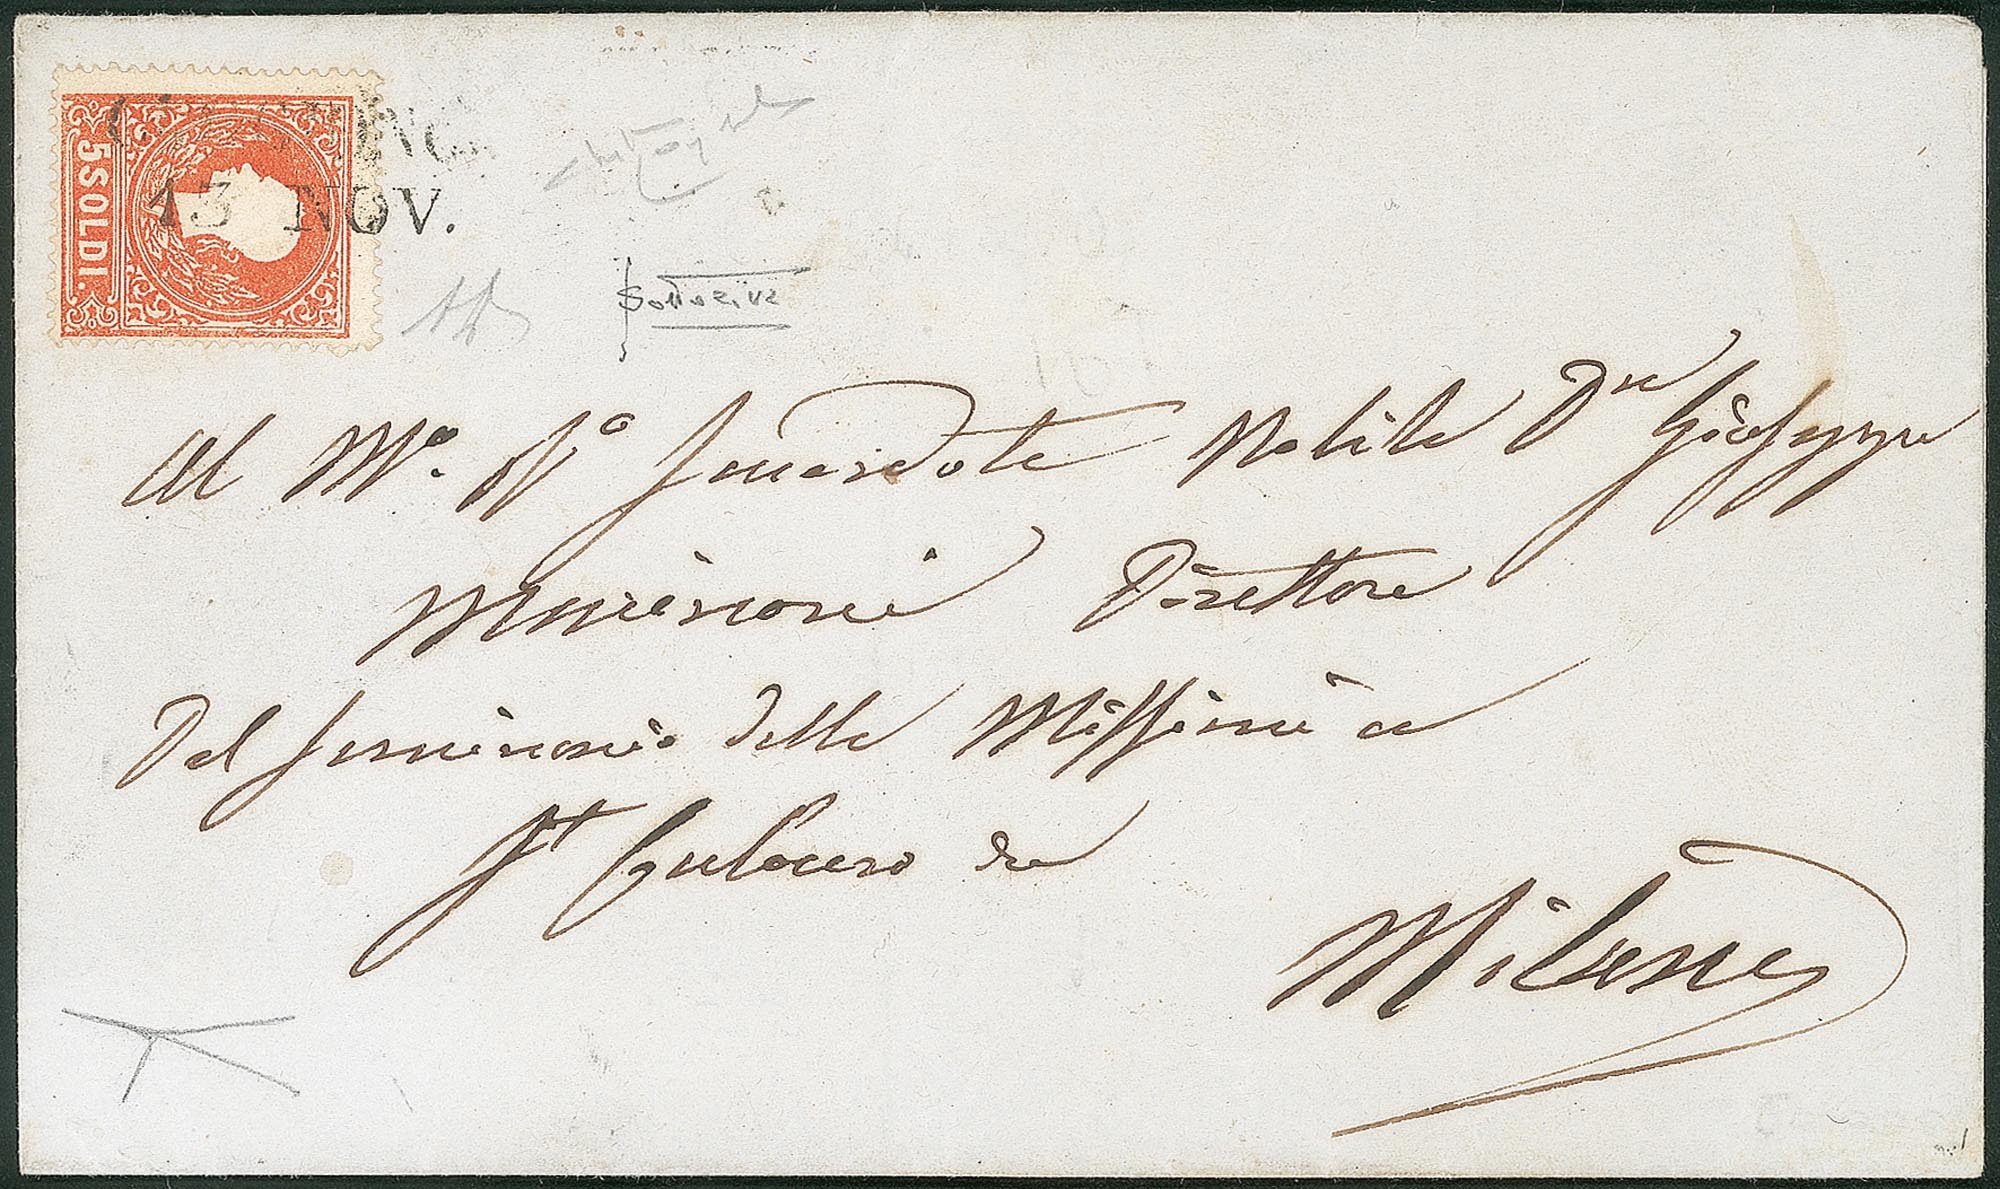 5 SOLDI.
13 NOV.
Al M.º Rº Sacerdote Nobile Dn Giuseppe
Marinoni Direttore
Del Seminario delle Missioni a
St Calocero di
Milano